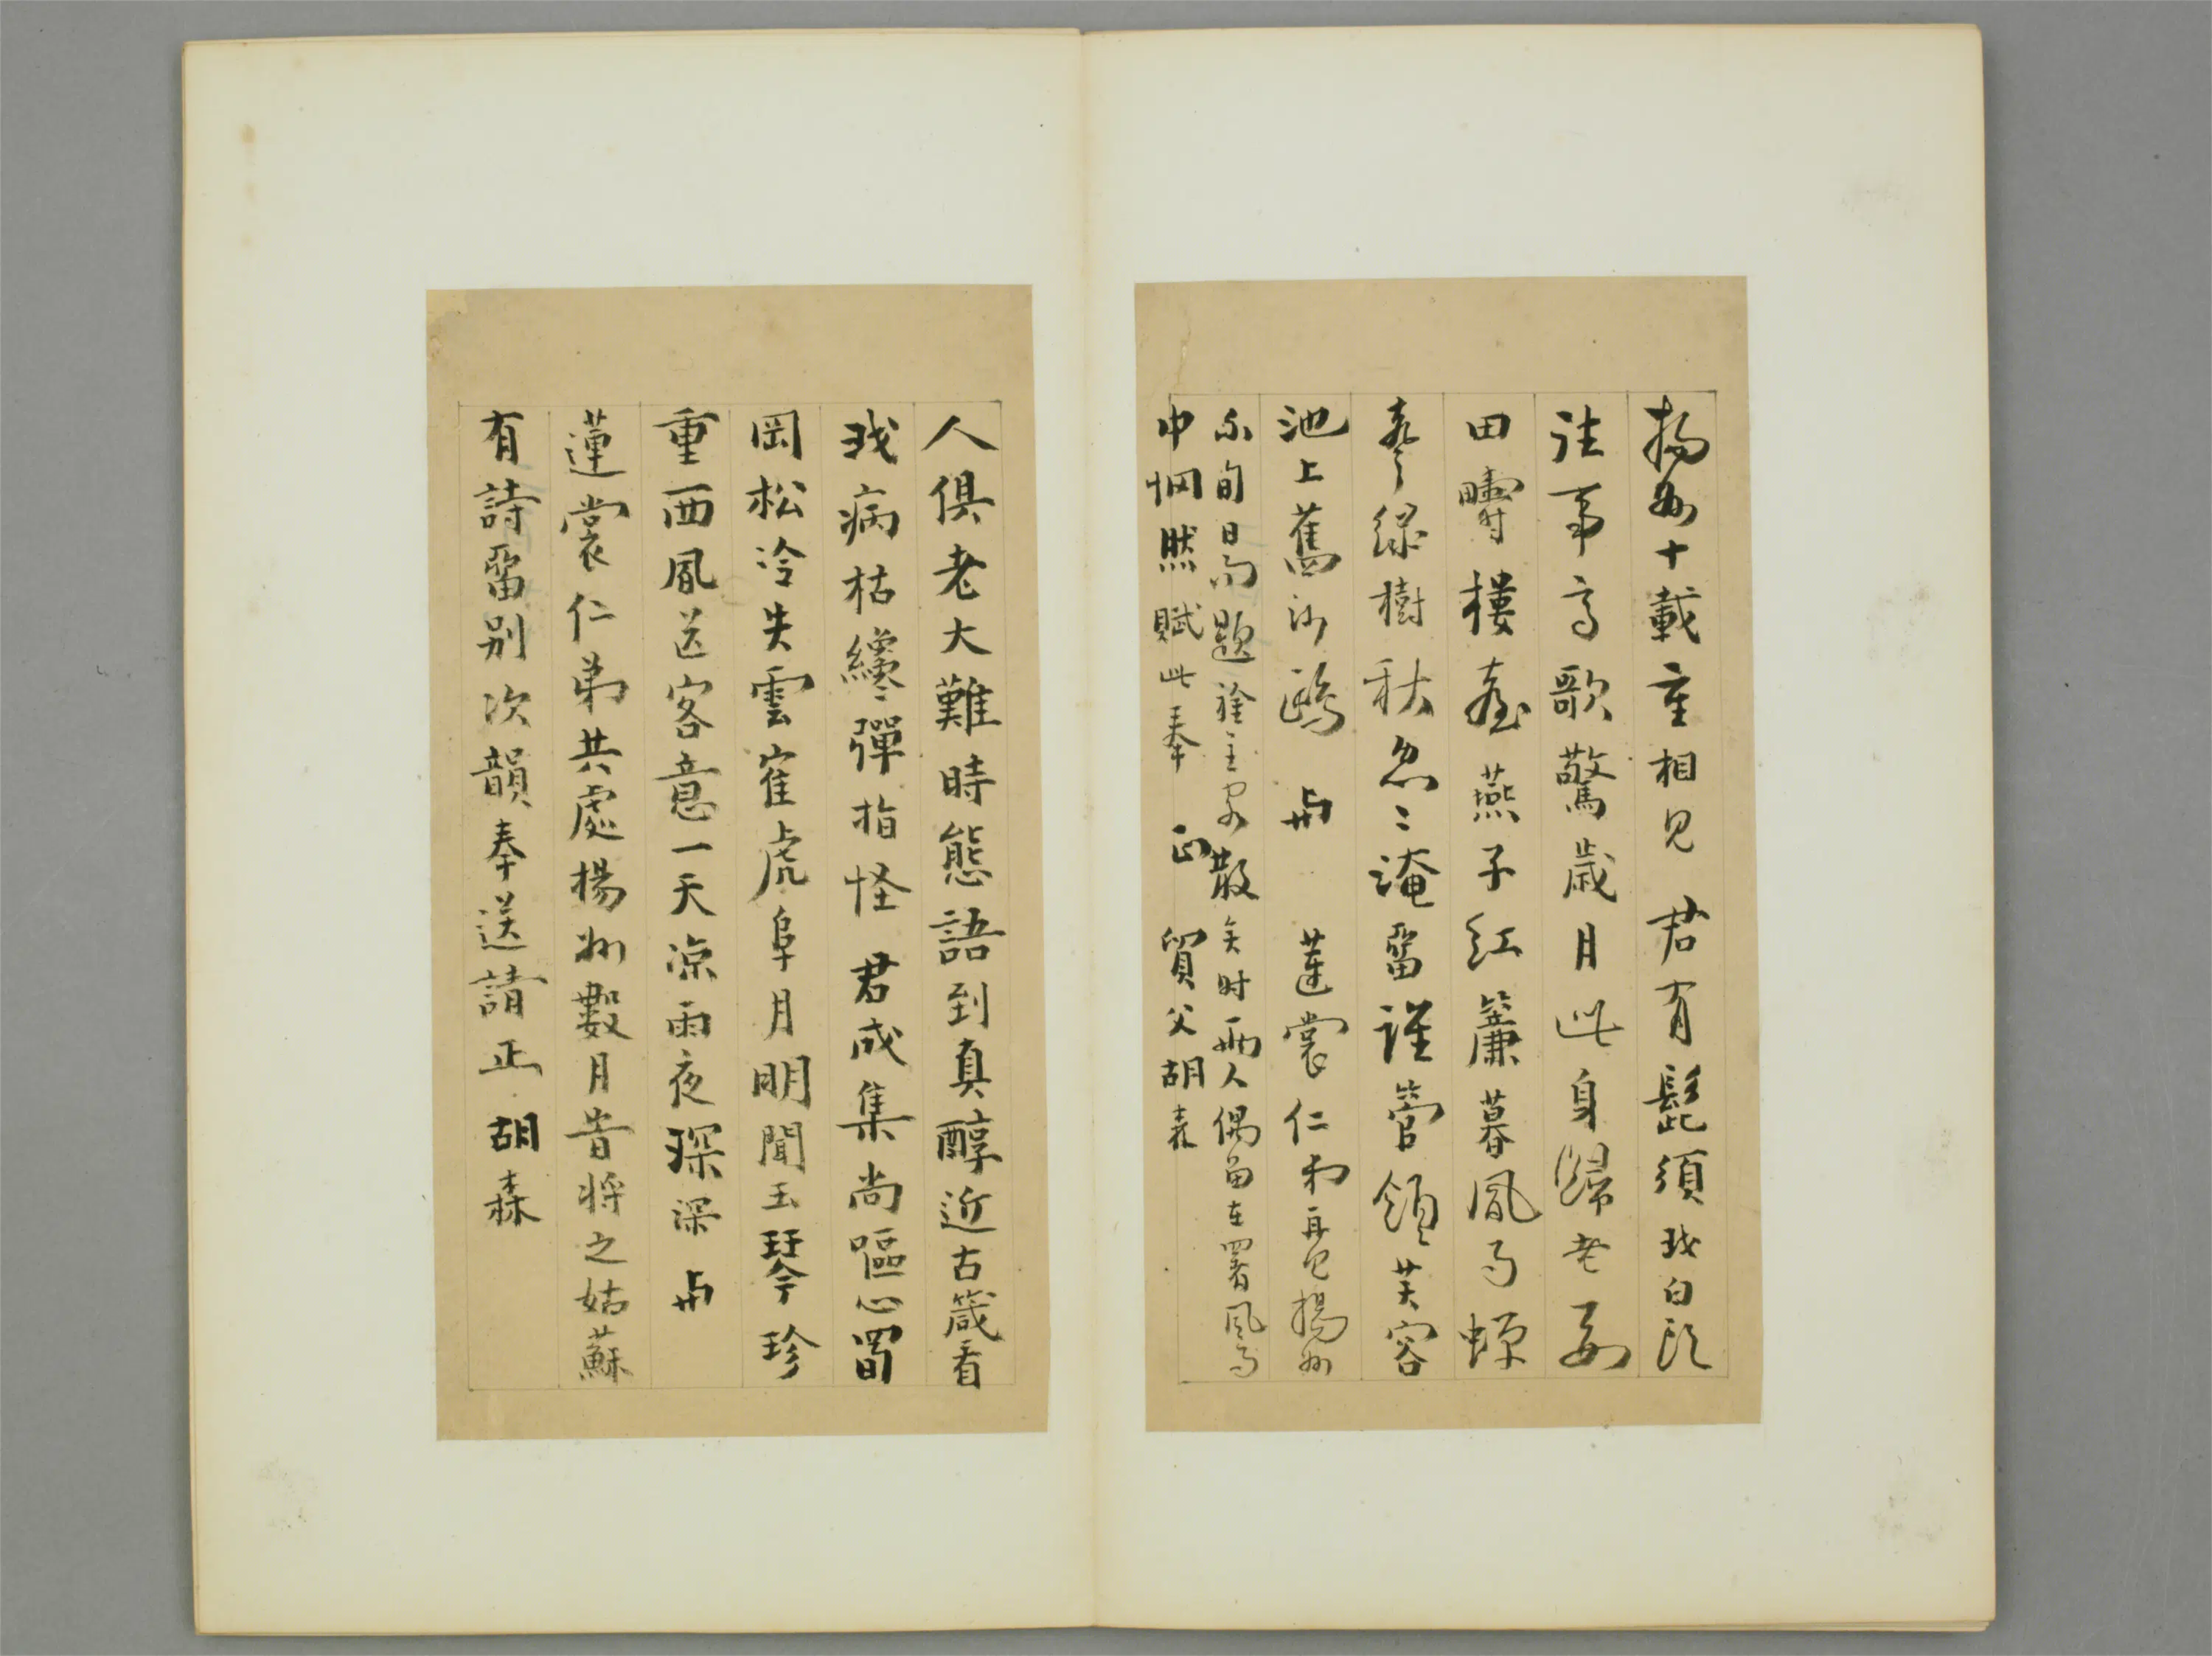 揚州十載重相見君有髭須我白頭
往事高歌驚歲月此身歸老要
田疇樓臺燕子紅簾暮風雨螵
蛸綠樹秋忽〻淹留誰管領芙容
池上舊沙鷗 與 蓮裳仁弟再見揚州
不旬日而題襟主客散矣时兩人偶留在署風雨
中惘然賦此奉 正 質父胡森
人俱老大難時態語到真醇近古箴看
我病枯纔彈指怪君成集尚嘔心蜀
岡松冷失雲隺虎阜月明聞玉琴珍
重西風送客意一天涼雨夜琛深 與
蓮裳仁弟共處揚州數月昔將之姑蘇
有詩畱別次韻奉送請正 胡森